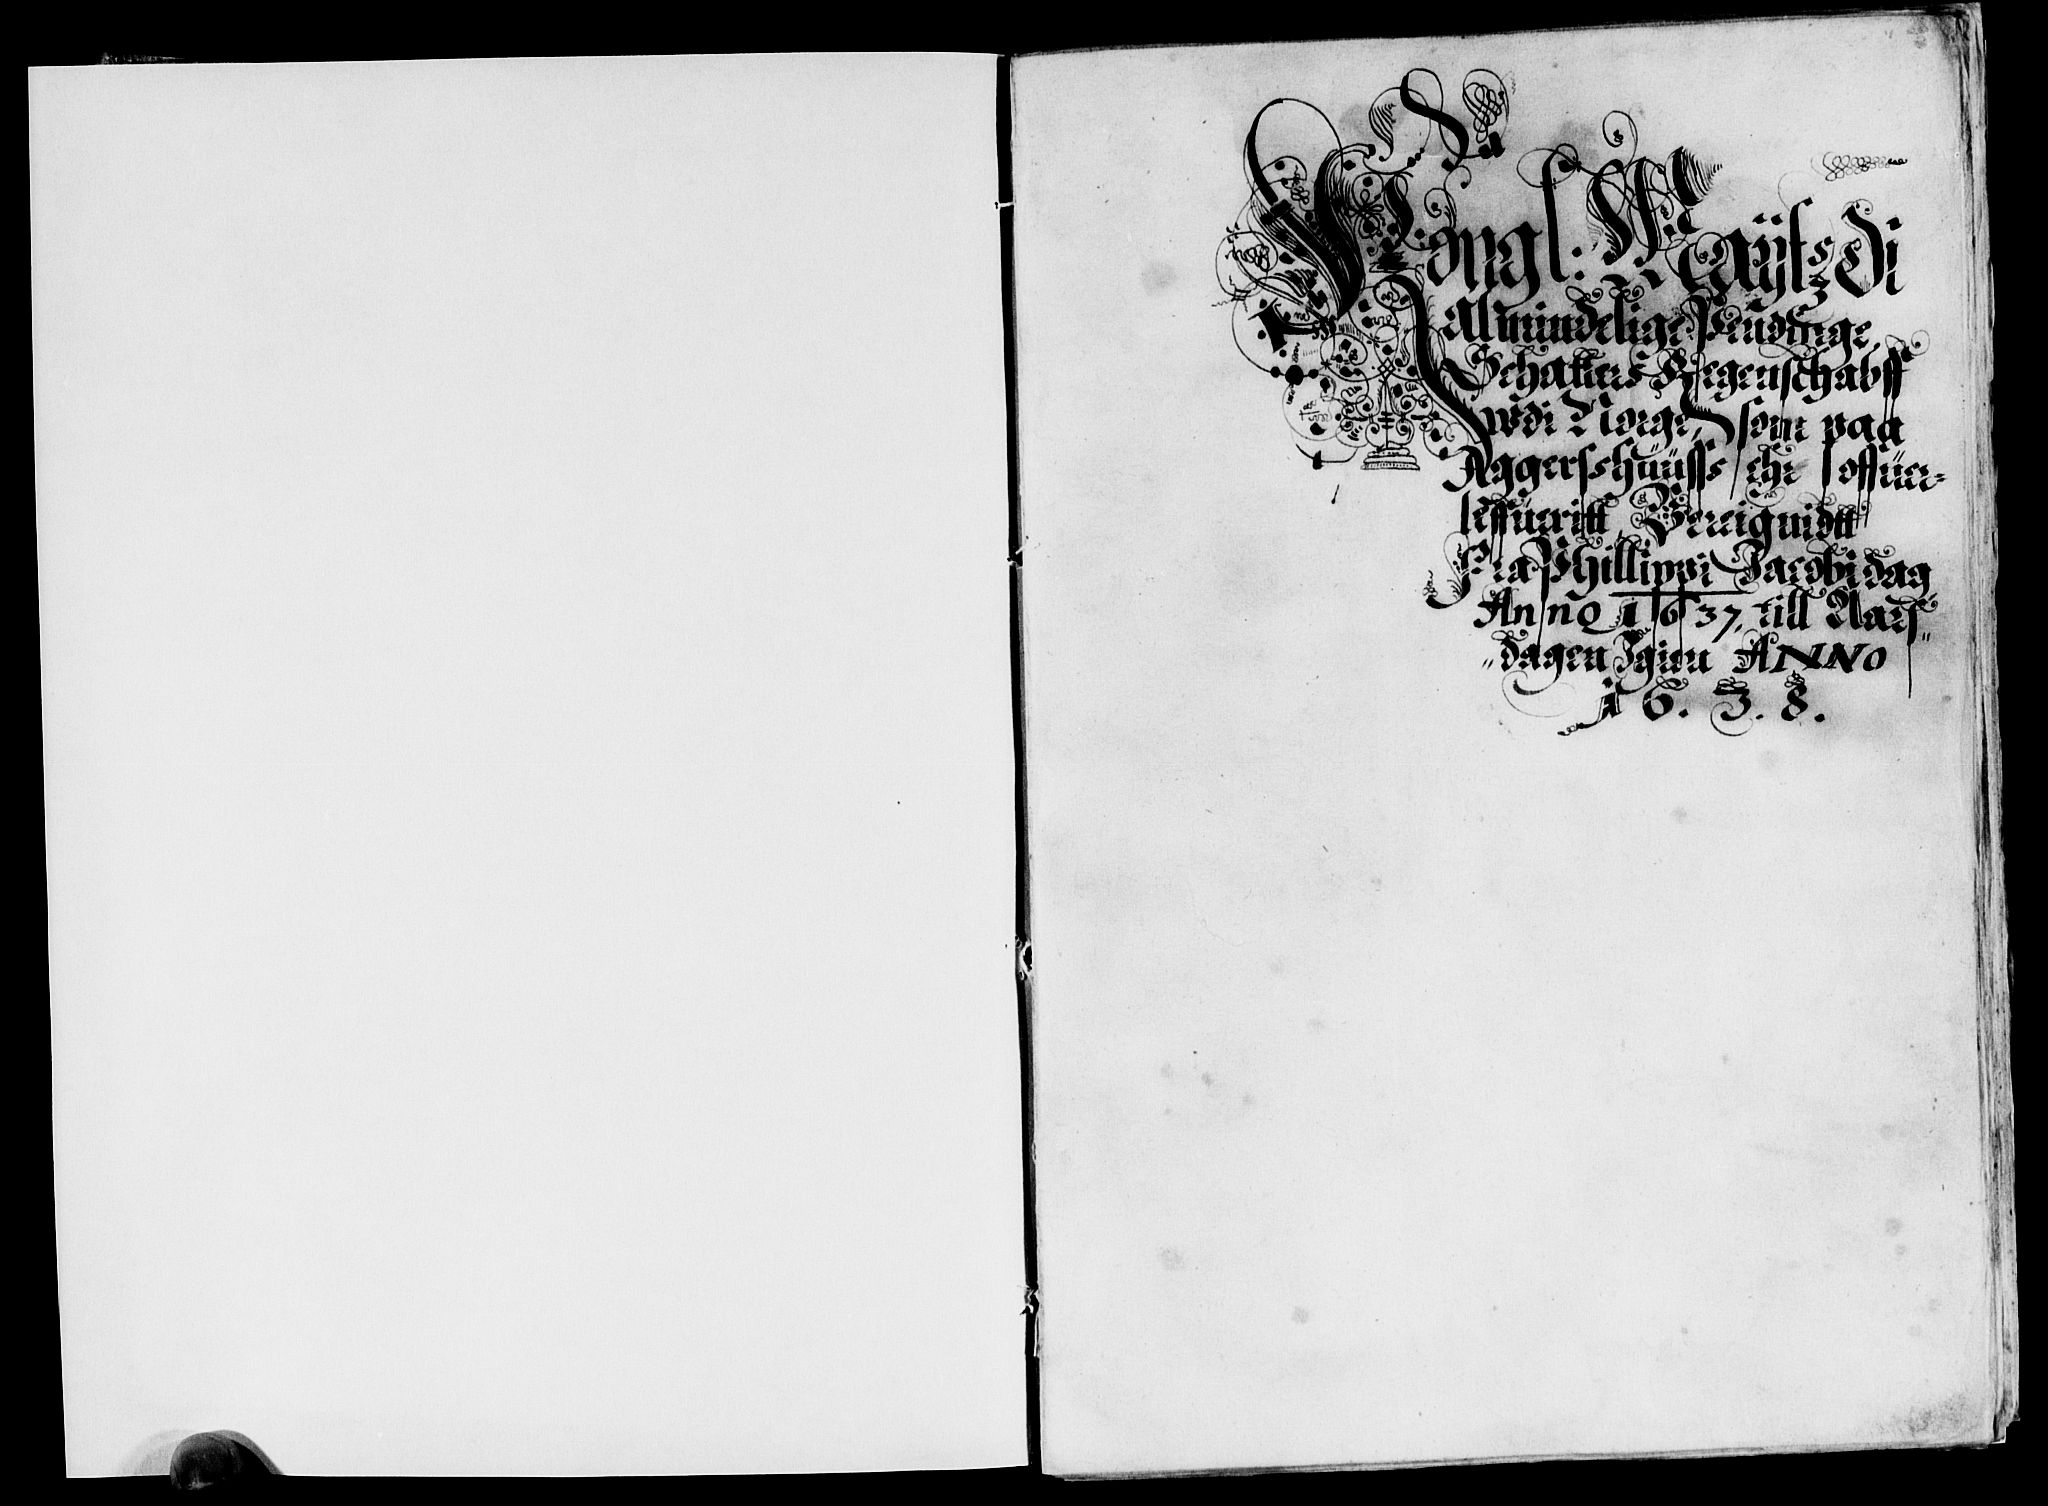 Kongl: Maÿtz Di
Almindelige Penndinge
Schatters Regenschabff
udi Norge, som paa
Aggerschuusse ehr
Bereignidtt
Fra Phillippi Jacobi dag
Anno 1637, till Aars
dagen Igien ANNO
1 6. 3. 8.